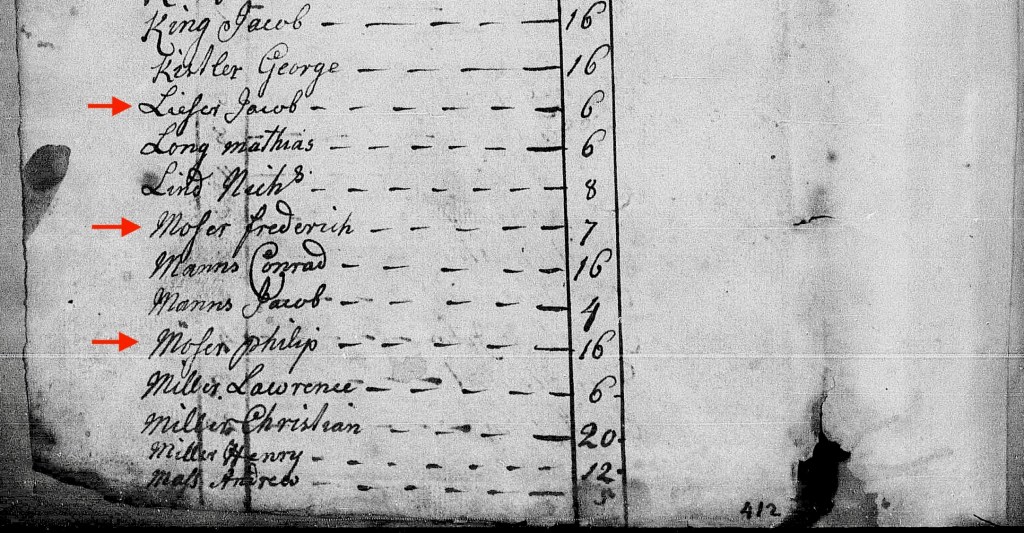 King Jacob 16
Kistler George 16
Lieser Jacob 6
Long mathias 6
Lind Nichs 8
Moser frederich 7
Manns Conrad 16
Manns Jacob 4
Moser philip 16
Miller Lawrence 6
Miller Christian 20
Miller Henry 12
Mass Andrew
412